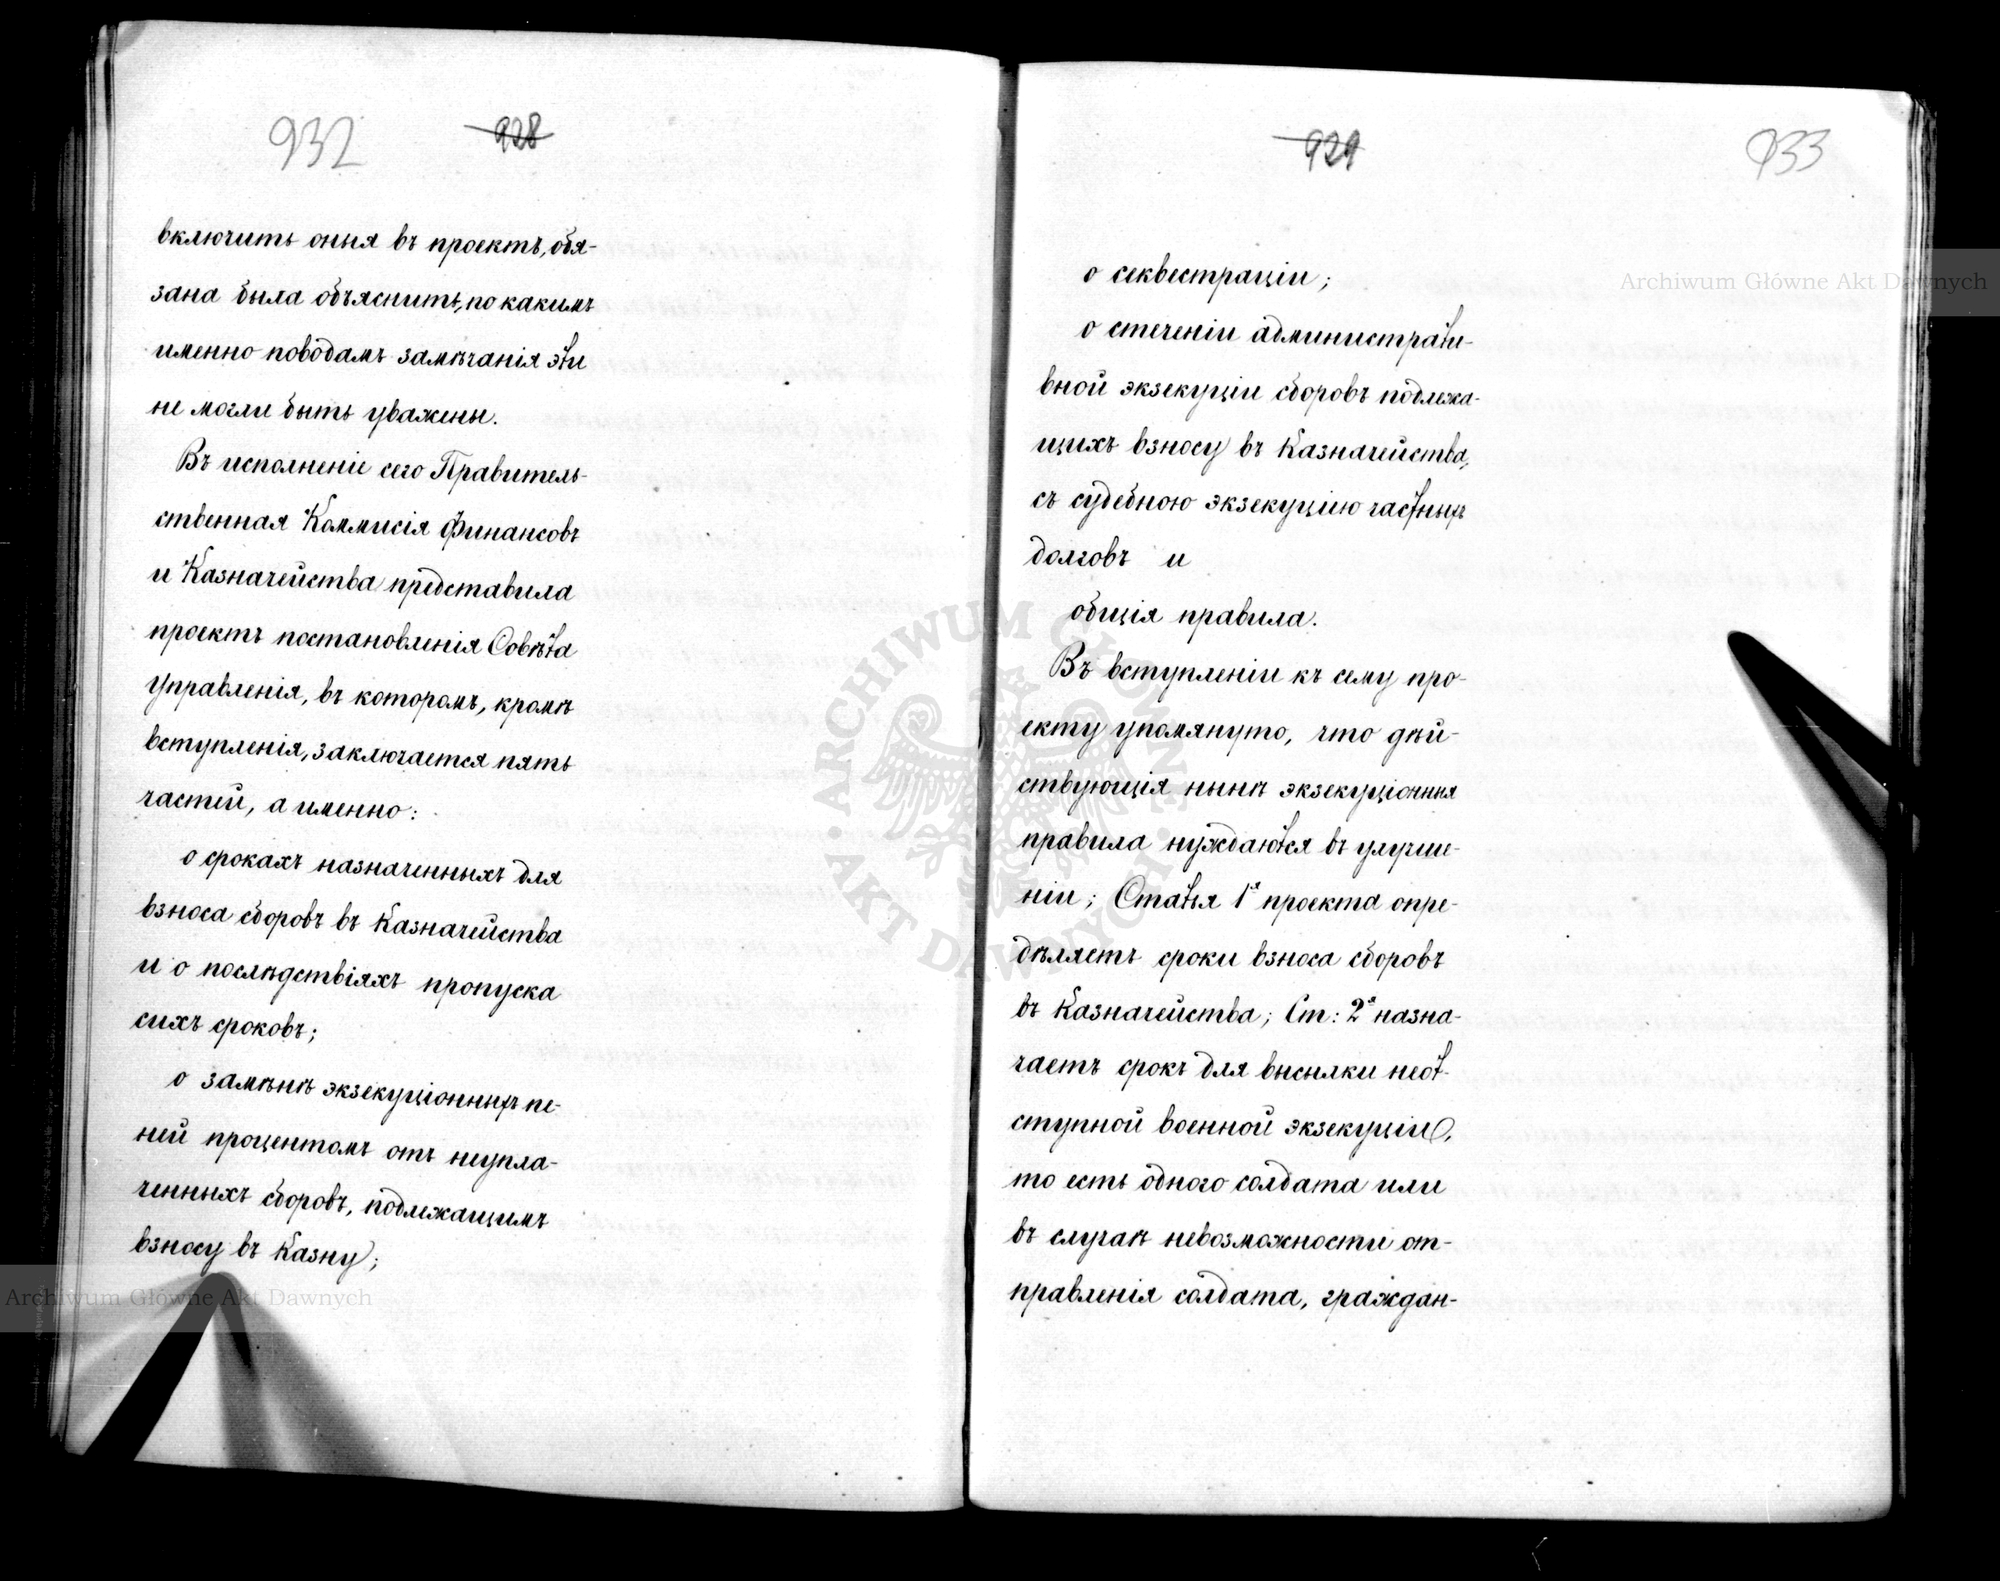 932 928
включить оныя въ проектъ, обя-
зана была объяснить, по какимъ
именно поводамъ замѣчанія эти
не могли быть уважены.
Въ исполненіе сего Правитель-
ственная Коммисія Финансовъ
и Казначейства представила
проектъ постановленія Совѣта
Управленія, въ которомъ, кромѣ
вступленія, заключается пять
частей, а именно:
о срокахъ назначенныхъ для
взноса сборовъ въ Казначейства
и о послѣдствіяхъ пропуска
сихъ сроковъ;
о замѣнѣ экзекуціонныхъ пе-
ней процентомъ отъ неупла-
ченныхъ сборовъ, подлежащимъ
взносу въ Казну;
929 933
о секвестраціи;
о стеченіи администрати-
вной экзекуціи сборовъ подлежа-
щихъ взносу въ Казначейства,
съ судебною экзекуціею частныхъ
долговъ и
общія правила.
Въ вступленіи къ сему про-
екту упомянуто, что дѣй-
ствующія нынѣ экзекуціонныя
правила нуждаются въ улучше-
ніи; Статья 1я проекта опре-
дѣляетъ сроки взноса сборовъ
въ Казначейства; Ст: 2я назна-
чаетъ срокъ для высылки неот-
ступной военной экзекуціи,
то есть одного солдата или
въ случаѣ невозможности от-
правленія солдата, граждан-
Archiwum Główne Akt Dawnych
Archiwum Główne Akt Dawnych
ARCHIWUM GŁÓWNE • AKT DAWNYCH •